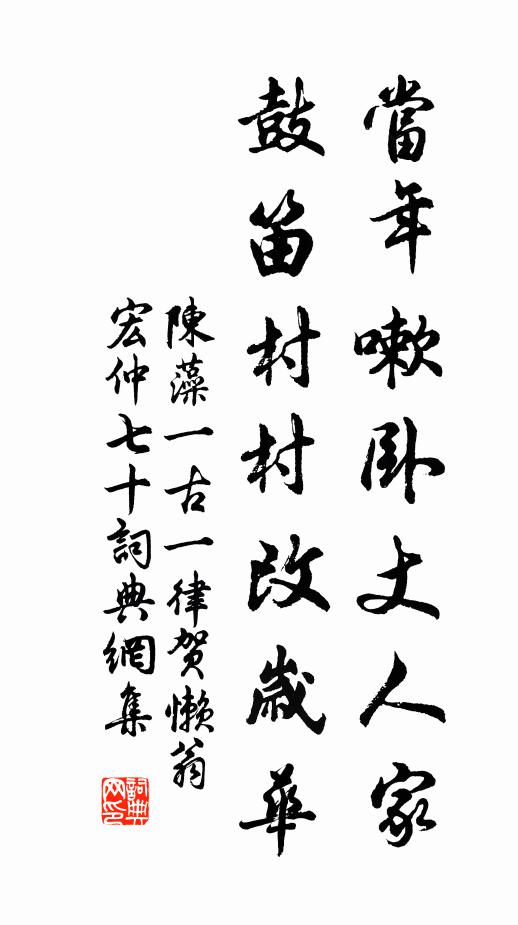 當年嗽卧丈人家
鼓笛村村改歲華
陳藻一古一律贺懒翁
宏仲七十詞典網集
詞典网印